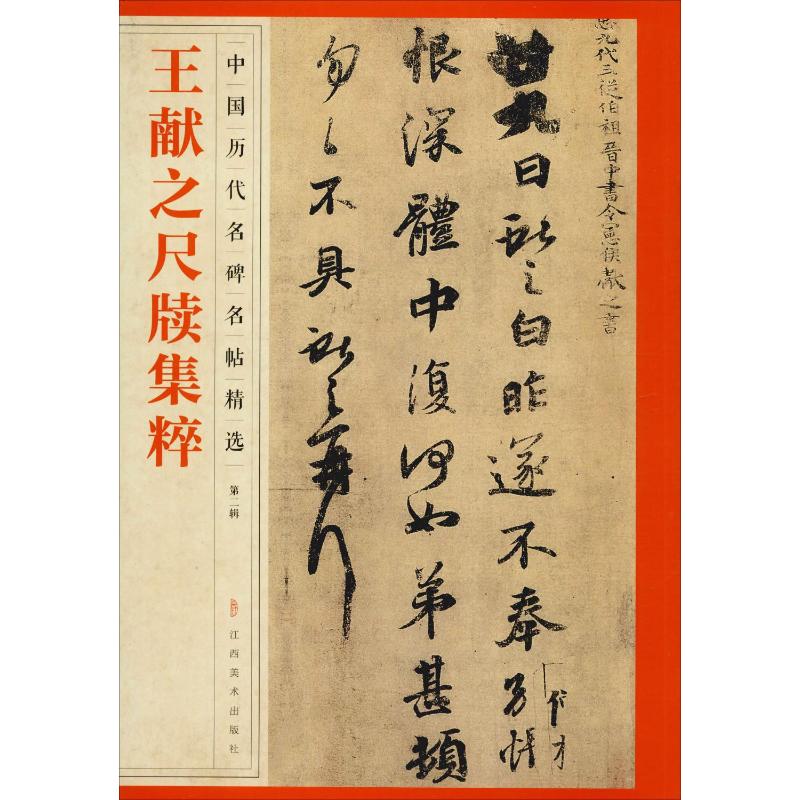 王献之尺牍集粹
中国历代名碑名帖精选
第二辑
江西美术出版社
九代三從伯祖晉中書令憲侯獻之書
廿九日獻之白昨遂不奉別悵
恨深體中復何如弟甚頓
勿〻不具獻之再拜